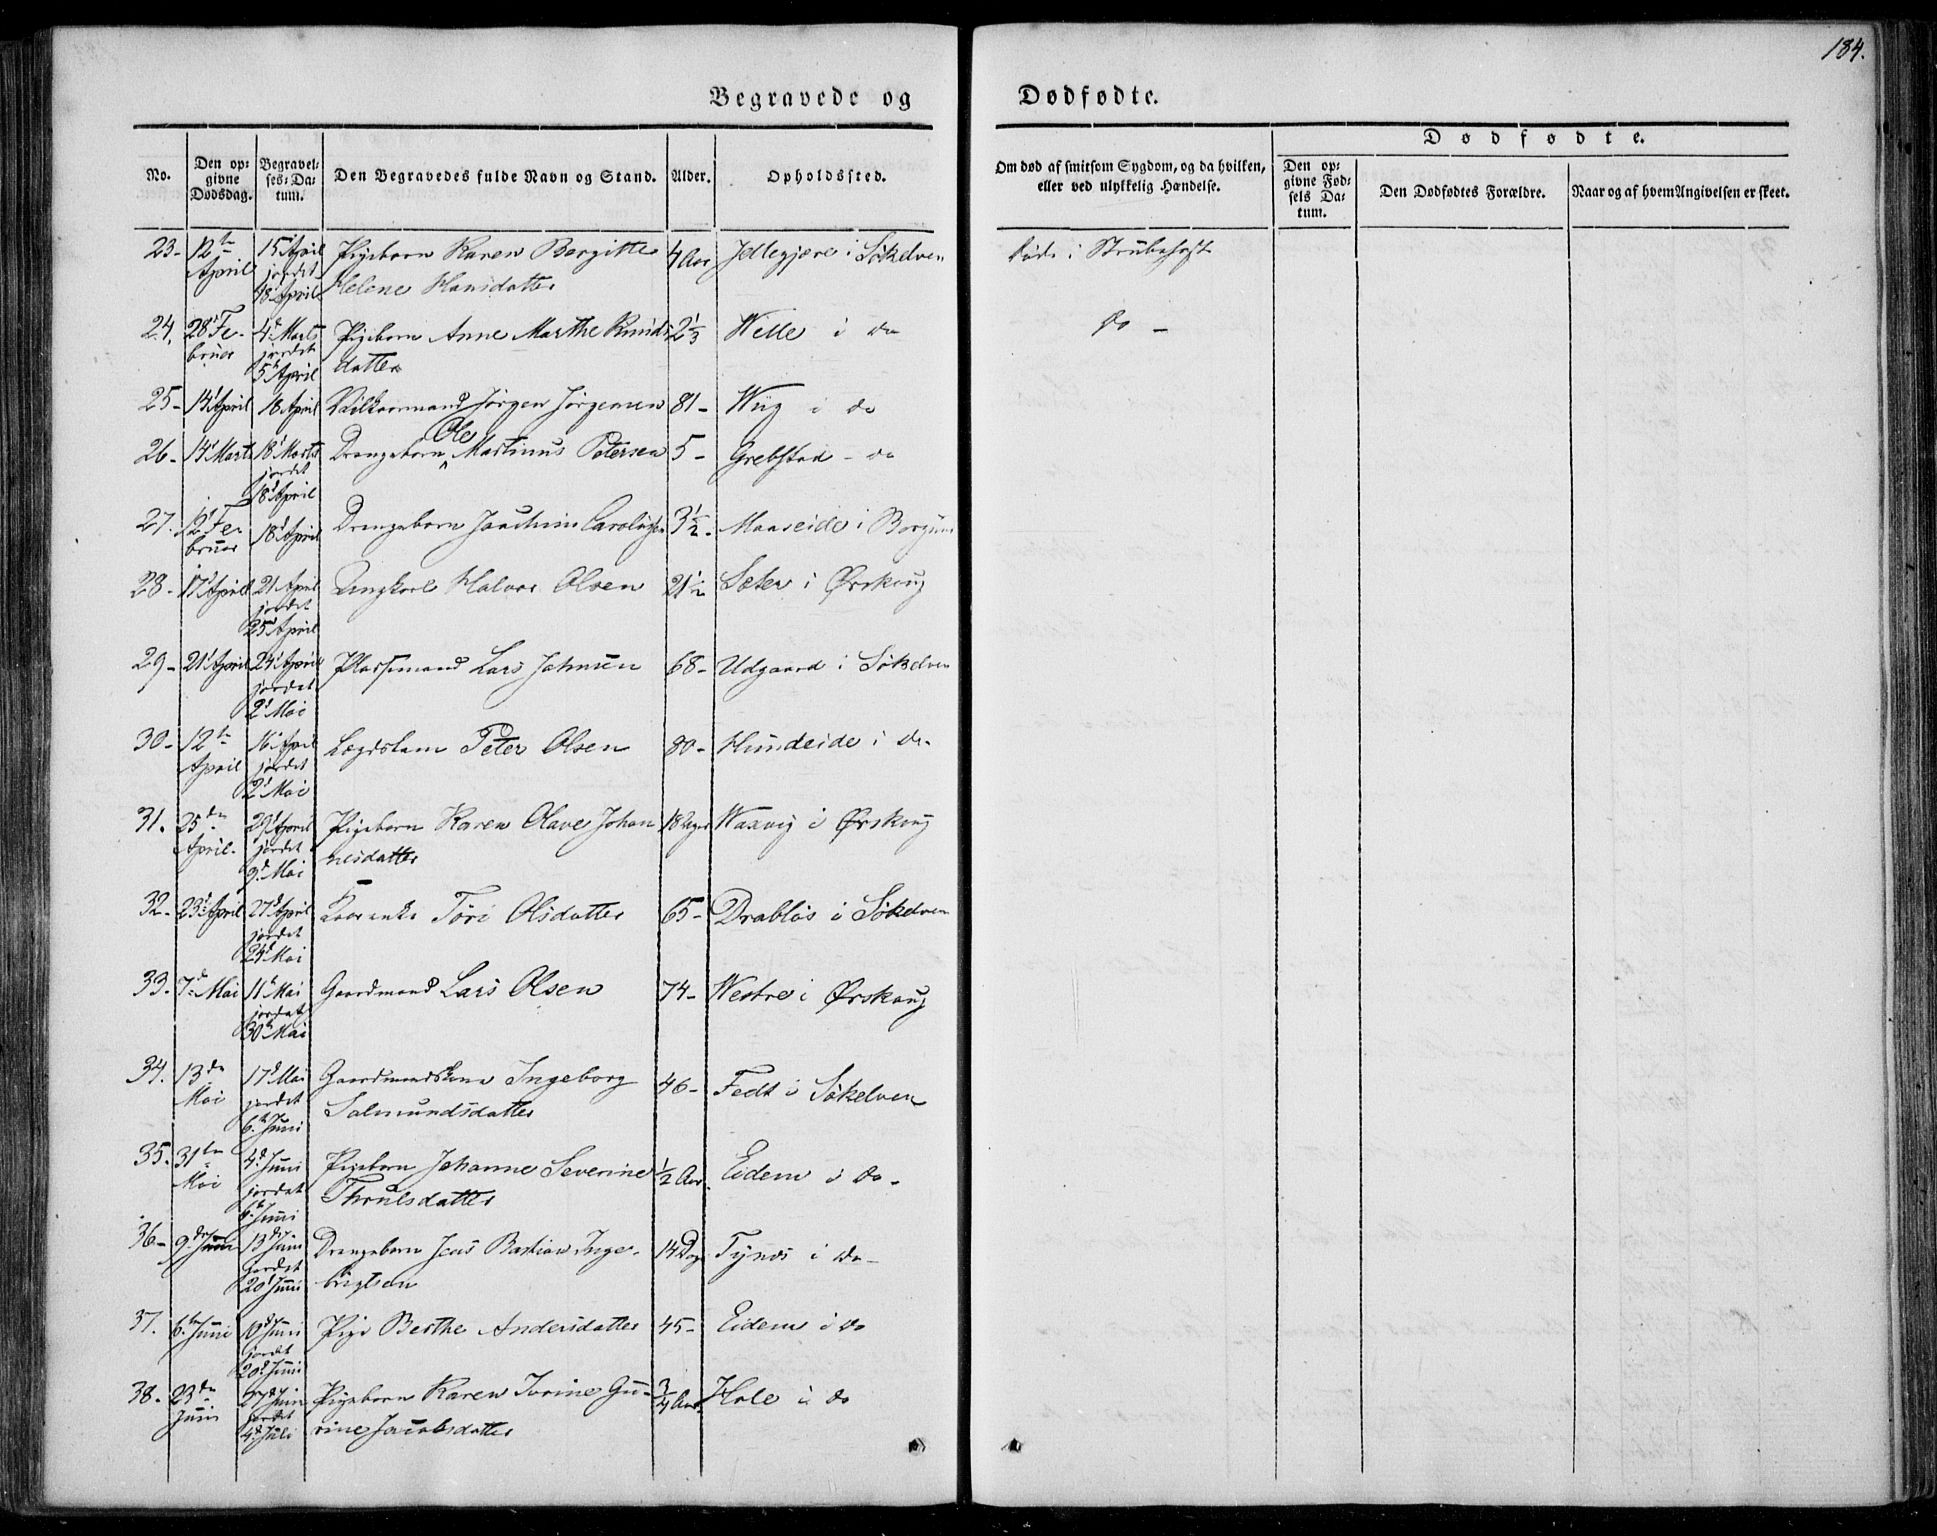 184.
Begravede og Dødfødte.
No.
Den opgivne Dødsdag.
Begravelses-Datum.
Den Begravedes fulde Navn og Stand.
Alder.
Opholdssted.
Om død af smitsom Sygdom, og da hvilken, eller ved ulykkelig Hændelse.
Dødfødte.
Den opgivne Fødsels Datum.
Den Dødfødtes Forældre.
Naar og af hvem Angivelsen er skeet.
23- 12te April 15 April jordet 18 April Pigebarn Karen Bergitte Helene Hansdatter 4 Aar Jellegjære i Søkelven Døde i Strubehoste
24. 28 Februar 4de Marts jordet 5te April Pigebarn Anne Marthe Knudsdatter 2 1/3 Wille i do do -
25- 14 April 18 April Vilkormand Jørgen Jørgensen 81- Wiig i do
26- 14 Marts 18 Marts jordet 18 April Drengebarn Ole Martinus Petersen 5- Grebstad - do
27. 12 Februar 18 April Drengebarn Joachim 3 1/2. Maaseide i Borgund
28- 17 April 21 April jordet 25 April Ungkarl Halvor Olsen 21 1/2 Sæter i Ørskoug
29- 21 April 24 April jordet 2 Mai Pladsemand Lars Johnsen 68- Udgaard i Søkelven
30- 12te April 16 April jordet 2 Mai Lægdslem Peter Olsen 80- Hundeide i do.
31. 25de April. 29 April jordet 9de Mai Pigebarn Karen Olave Johannesdatter 18 Uger Waxvig i Ørskoug
32- 23 April 27 April jordet 24 Mai Kaarenke Tøri Olsdatter 65- Drabløs i Søkelven
33. 7de Mai 11 Mai jordet 30 Mai Gaardmand Lars Olsen 74- Westre i Ørskoug
34. 13de Mai 17 Mai jordet 6te Juni Gaardmandskone Ingeborg Salmundsdatter 46- Fedt i Søkelven
35. 31te Mai 4de Juni jordet 6te Juni Pigebarn Johanne Severine Thrulsdatter 1/2 Aar. Eidem i do-
36- 9de Juni 13de Juni jordet 20 Juni Drengebarn Jens Bastian Ingebrigtsen 14 Dage Tynes i do-
37. 6te Juni 10de Juni jordet 20de Juni Pige Berthe Andersdatter 45- Eidem i do
38. 23de Juni 27de Juni jordet 4de Juli Pigebarn Karen Ivrine Gurine Jacobsdatter 3/4 Aar. Hole i do